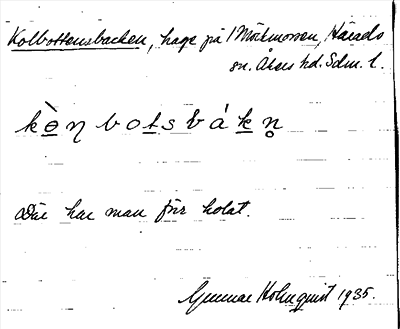 Kolbottensbacken, hage på Mörkmossen, Härads
sn. Åkers hd. Sdm. l.
botsbákn̥
Där har man förr kolat.
Gunnar Holmquist 1935.